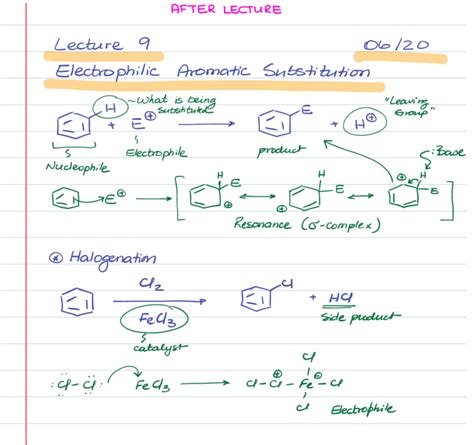 AFTER LECTURE
Lecture 9 06/20
Electrophilic Aromatic Substitution
H ~What is being substituted "Leaving Group"
+ E⊕ → E + H⊕
Nucleophile Electrophile product :Base
E⊕ → [ H E ⊕ ↔ H E ⊕ ↔ H E ⊕
Resonance (σ-complex)
⊛ Halogenation
Cl₂ Cl
FeCl₃ + HCl
catalyst Side product
:Cl-Cl: FeCl₃ → Cl-Cl⊕-Fe⊖-Cl
Cl
Cl
Electrophile